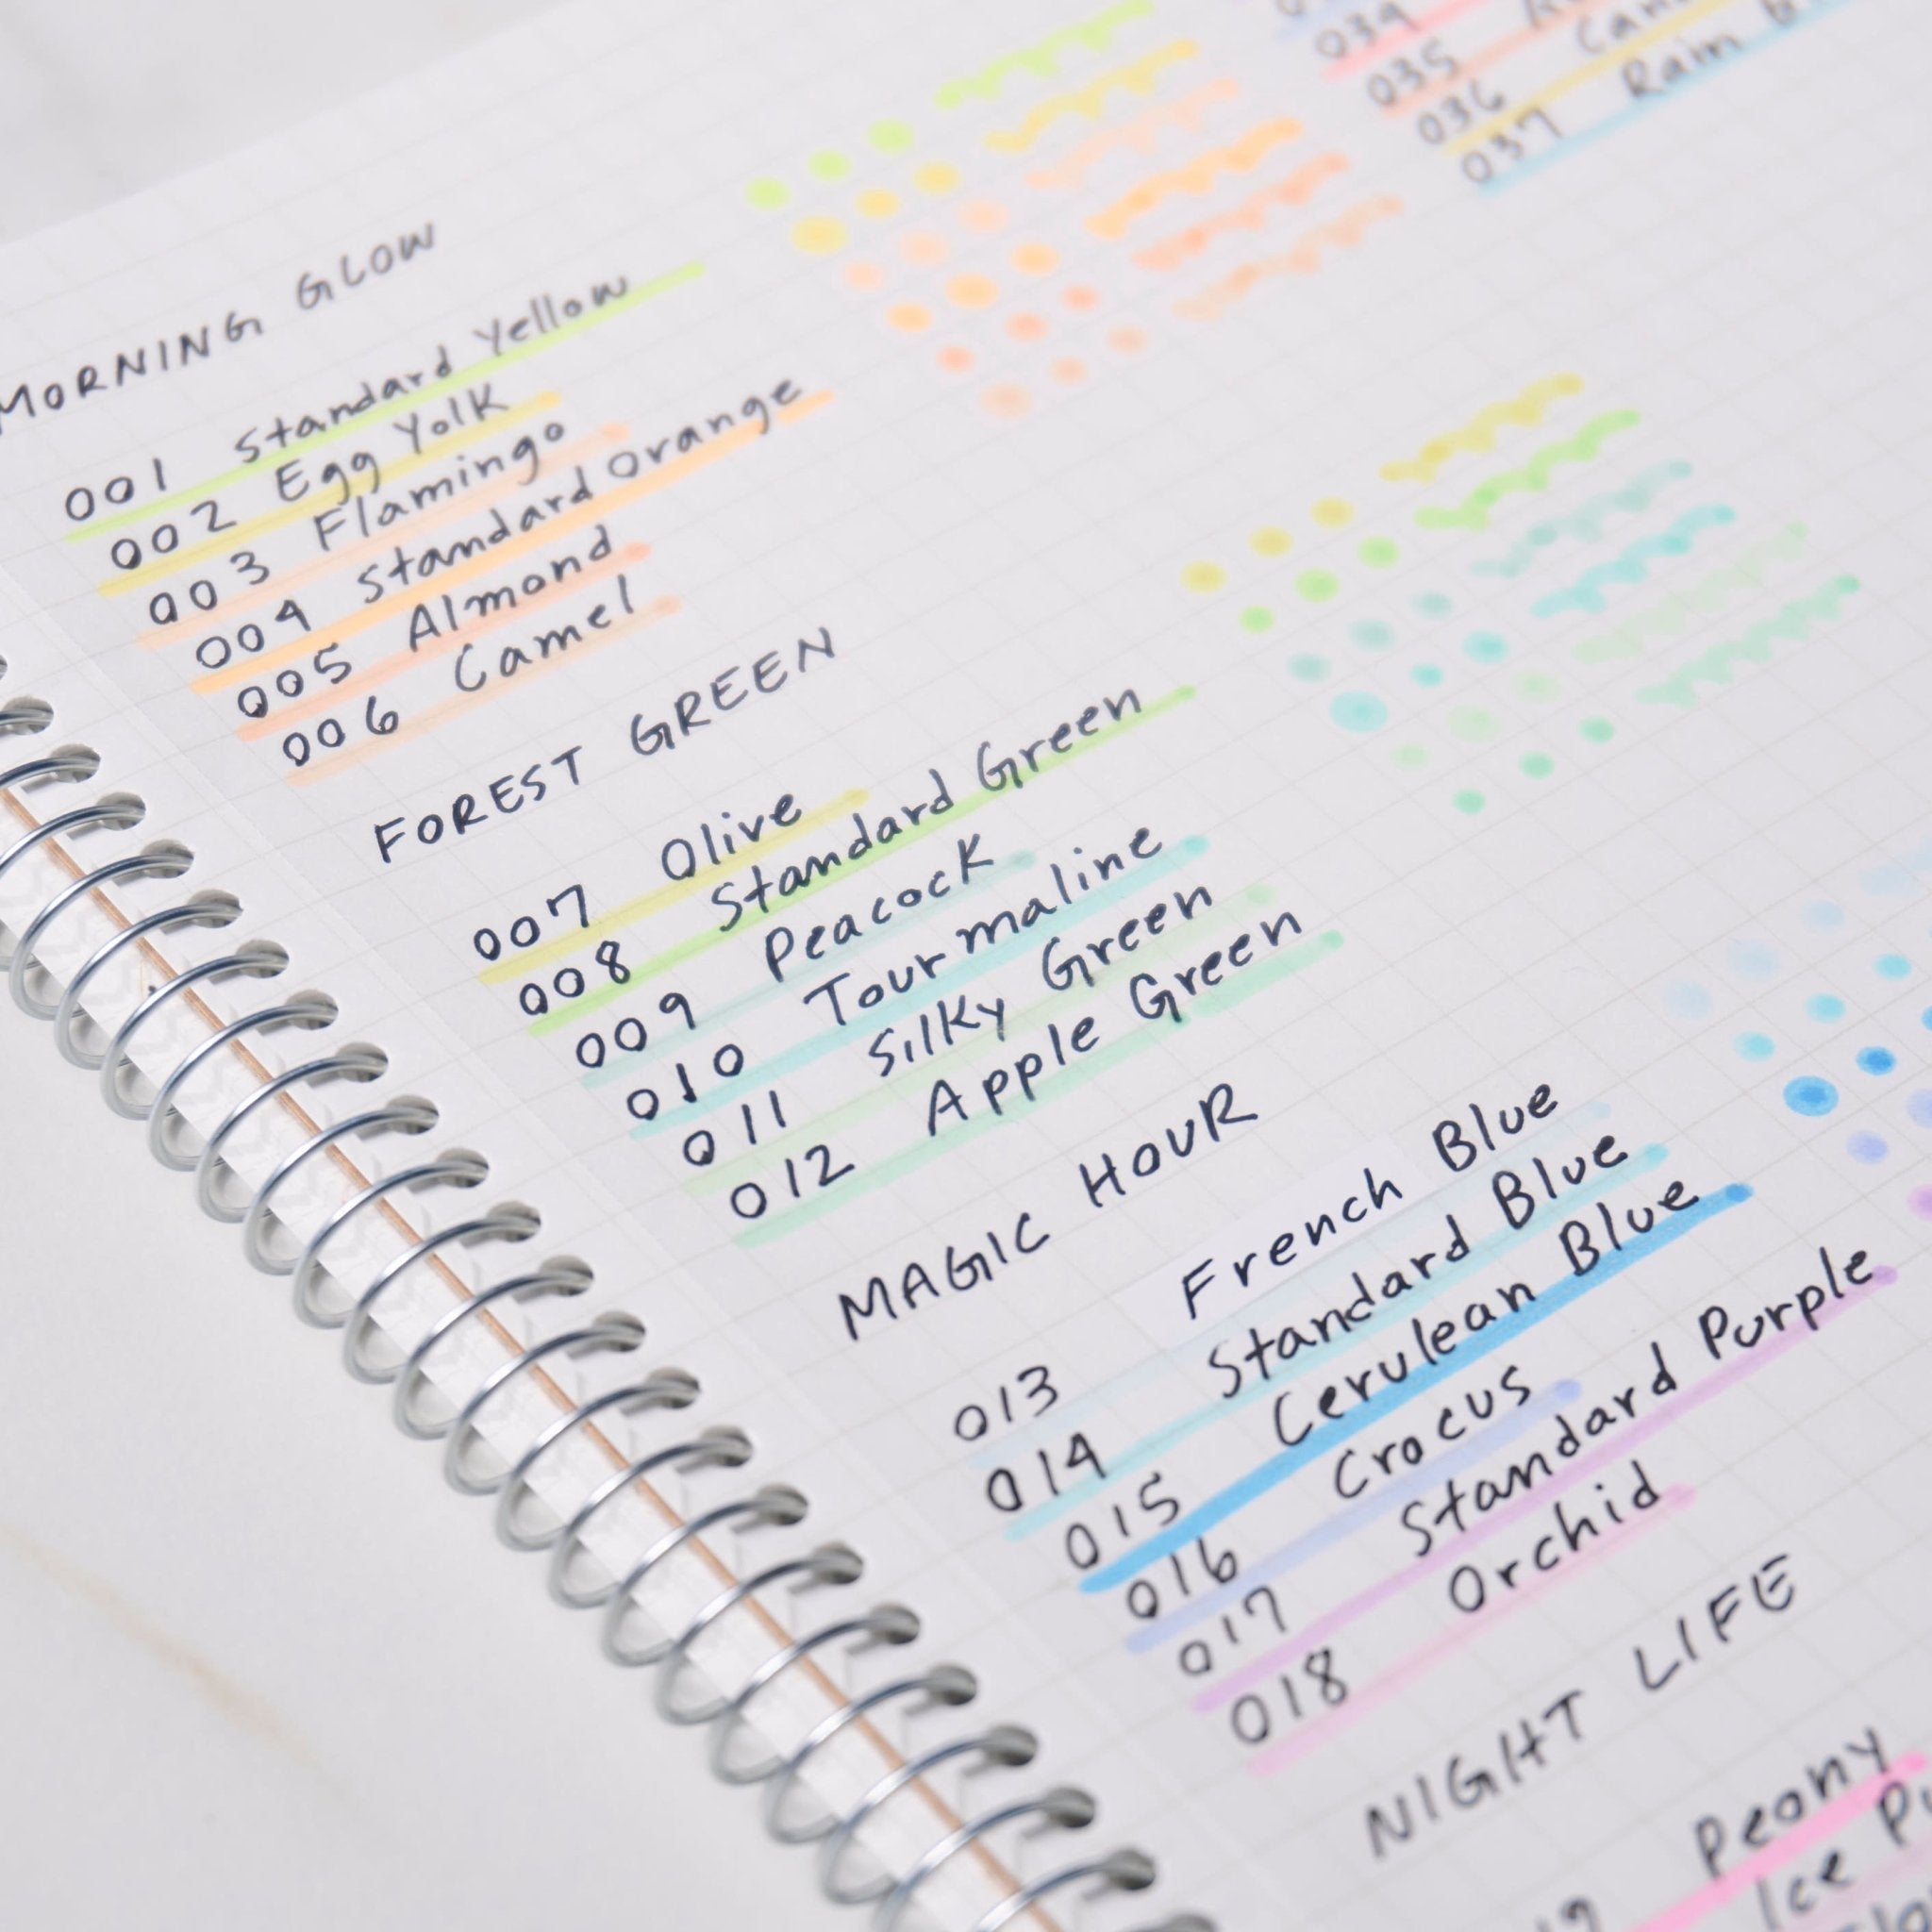 MORNING GLOW
001 Standard Yellow
002 Egg Yolk
003 Flamingo
004 Standard Orange
005 Almond
006 Camel
FOREST GREEN
007 Olive
008 Standard Green
009 Peacock
010 Tourmaline
011 Silky Green
012 Apple Green
MAGIC HOUR
013 French Blue
014 Standard Blue
015 Cerulean Blue
016 Crocus
017 Standard Purple
018 Orchid
NIGHT LIFE
Peony
Ice
034
035
036
037 Rain